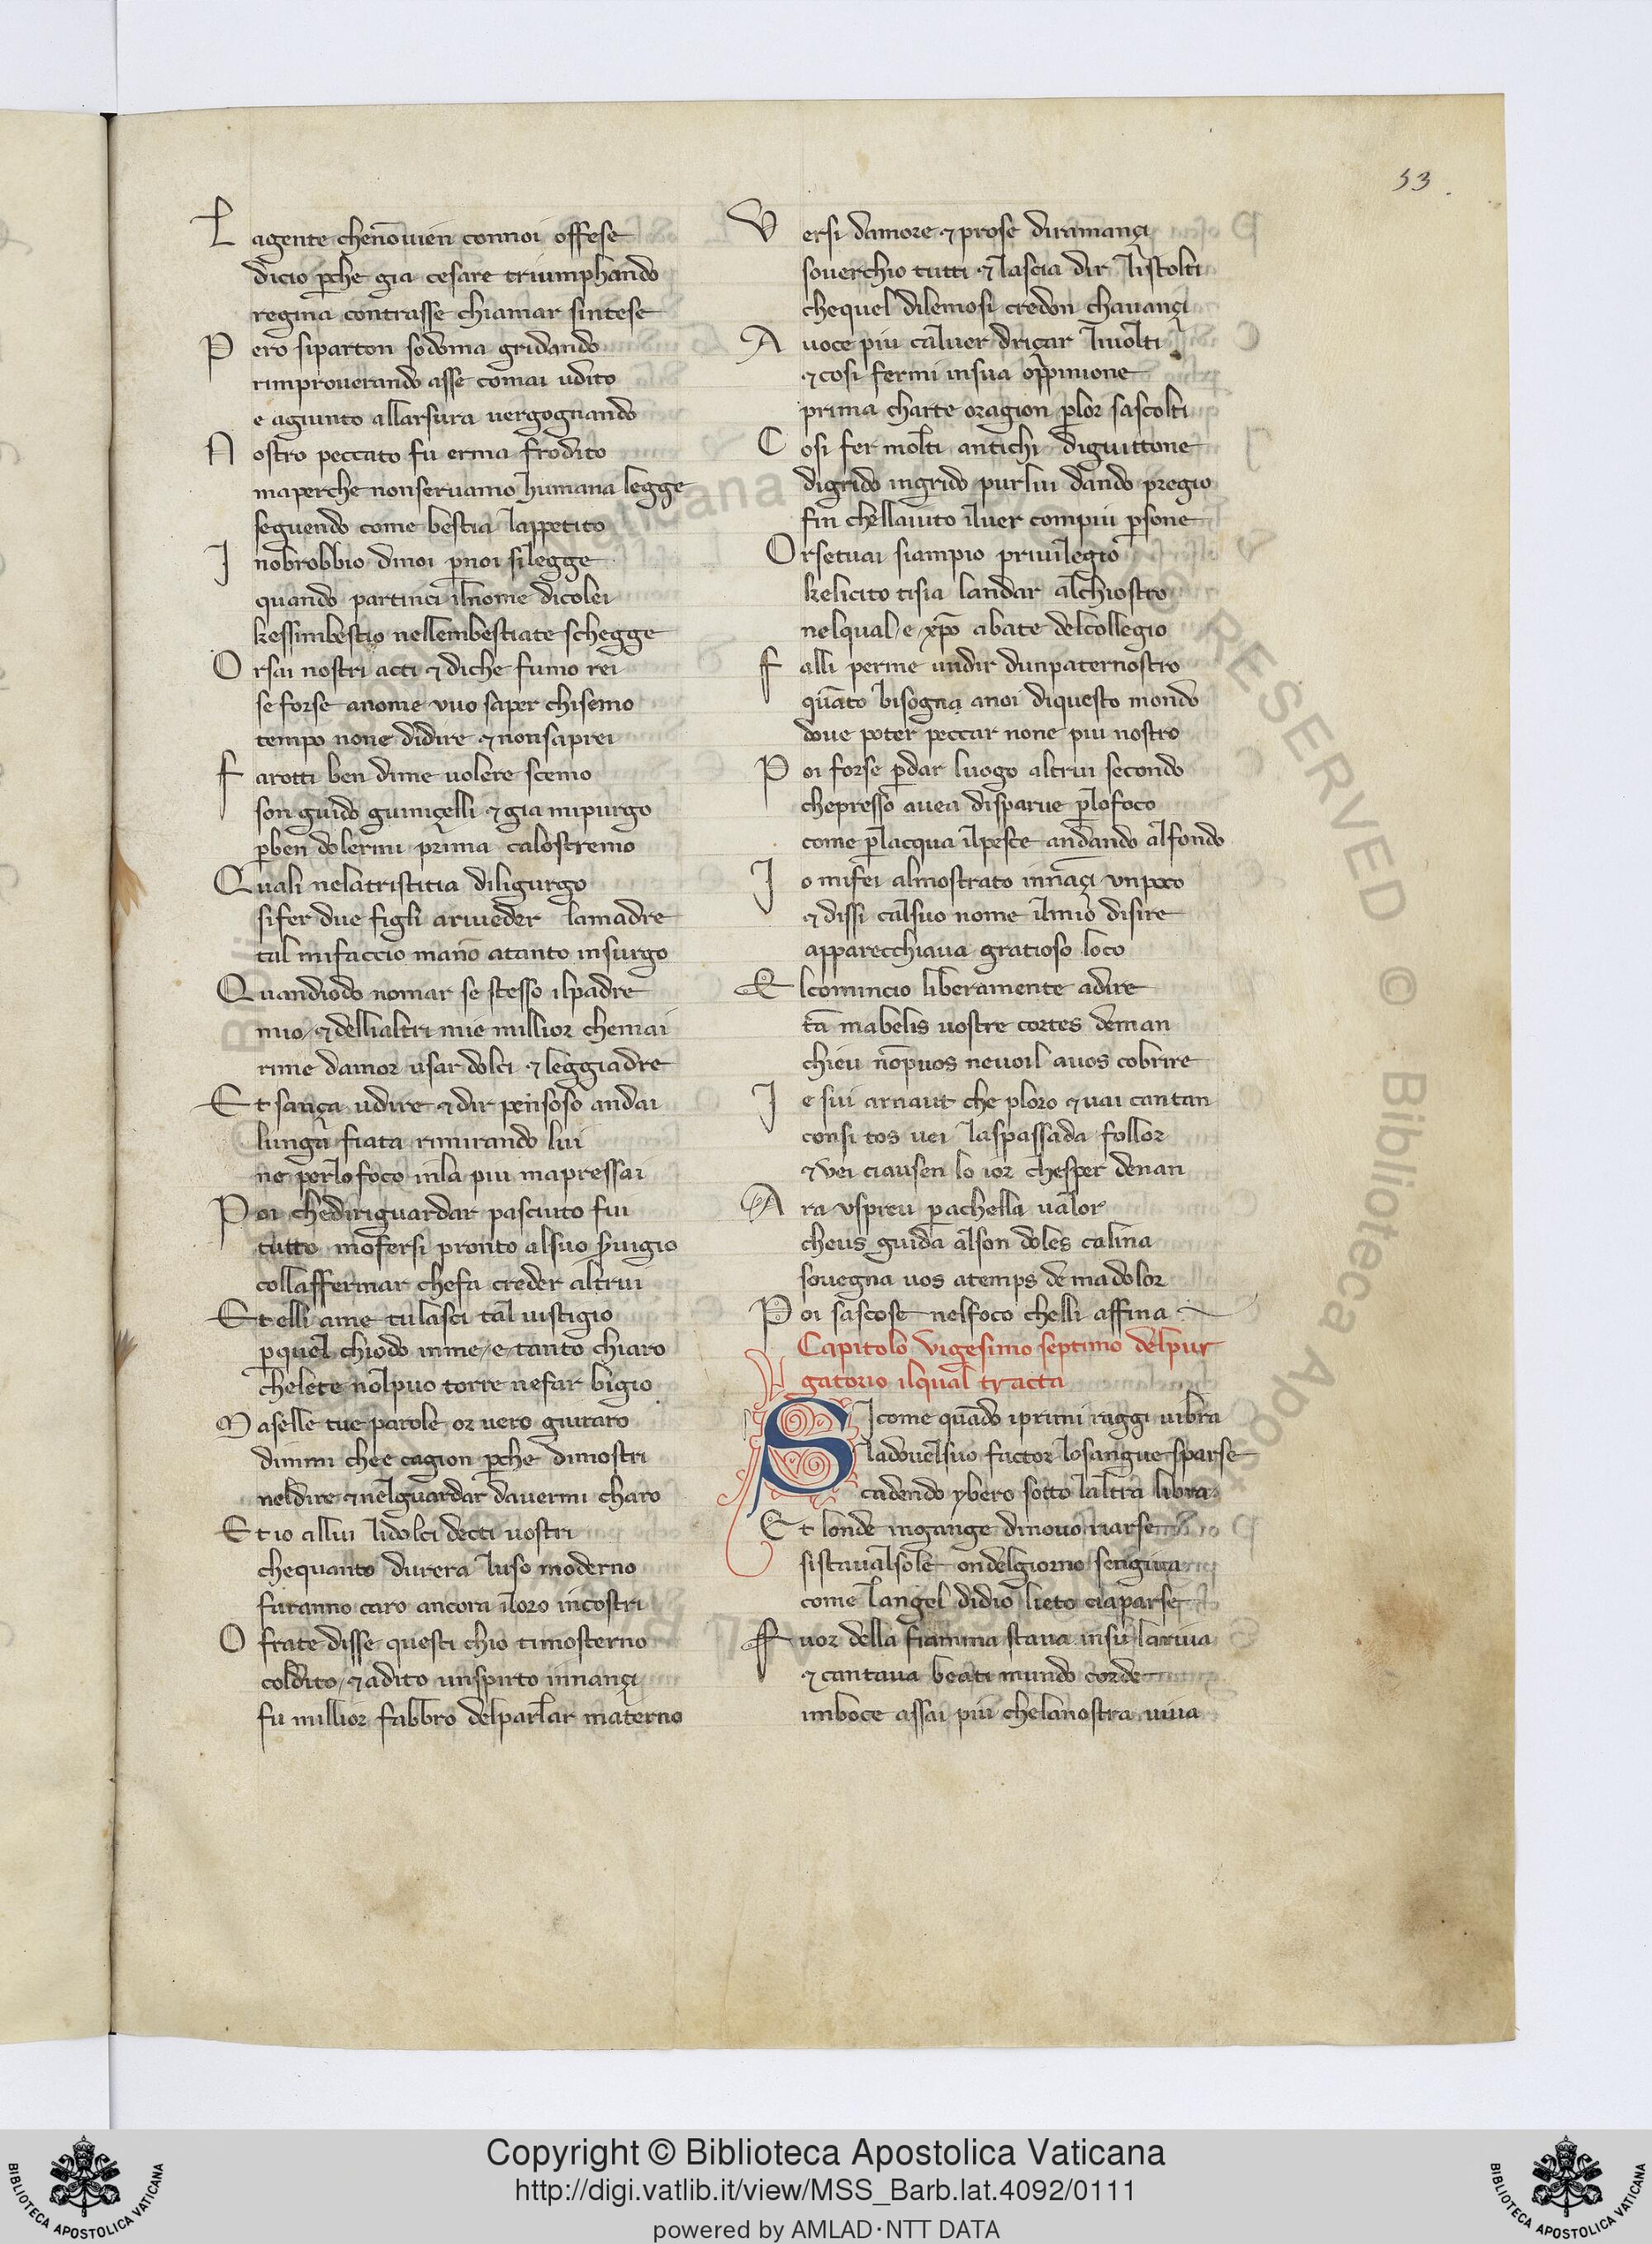 53.
L agente chenōuien connoi offese
dicio p̄che gia cesare triumphando
regina contrasse chiamar sintese
P ero siparton sodoma gridando
rimprouerando asse comai udito
e agiunto allarsura uergognando
N ostro peccato fu erma frodito
maperche nonseruamo humana legge
seguendo come bestia lappetito
I nobrobbio dinoi p̄noi silegge
quando partinci ilnome dicolei
kessimbestio nellembestiate schegge
O rsai nostri acti & diche fumo rei
se forse anome vuo saper chisemo
tempo none didire & nonsaprei
F arotti ben dime uolere scemo
son guido guiniçelli & gia mipurgo
p̄ben dolermi prima calostremo
Q uali nelatristitia diligurgo
sifer due figli ariueder lamadre
tal mifaccio manō atanto insurgo
Q uandiodo nomar se stesso ilpadre
mio & dellialtri mie millior chemai
rime damor usar dolci & leggiadre
E t sança udire & dir pensoso andai
lunga fiata rimirando lui
ne perlofoco inla piu mapressai
P oi chediriguardar pasciuto fui
tutto mofersi pronto alsuo s̄uigio
collaffermar chefa creder altrui
E t elli ame tulasci tal uistigio
p̄quel chiodo inme e tanto chiaro
chelete nolpuo torre nefar bigio
M aselle tue parole or uero giuraro
dimmi chee cagion p̄che dimostri
neldire & nelguardar dauermi charo
E t io allui lidolci decti uostri
chequanto durera luso moderno
faranno caro ancora iloro incostri
O frate disse questi chio timosterno
coldito & adito unspirto innançi
fu millior fabbro delparlar materno
V ersi damore & prose diromançi
souerchio tutti & lascia dir listolti
chequel dilemosi credon chauançi
A uoce piu caluer driçar liuolti
& cosi fermi insua oppinione
prima charte oragion p̄lor sascolti
C osi fer molti antichi diguittone
digrido ingrido purlui dando pregio
fin chellauito iluer compiu p̄sone
O rsetuai siampio priuilegio
kelicito tisia landar alchiostro
nelqual e xp̄o abate delcollegio
F alli perme undir dunpaternostro
quāto bisogna anoi diquesto mondo
doue poter peccar none piu nostro
P oi forse p̄dar luogo altrui secondo
chepresso auea disparue p̄lofoco
come p̄lacqua ilpesce andando alfondo
I o mifei almostrato innāçi vnpoco
& dissi calsuo nome ilmio disire
apparecchiaua gratioso loco
E lcomincio liberamente adire
tā mabelis uostre cortes deman
chieu nōpuos neuoil auos cobrire
I e sui arnaut che ploro & uai cantan
consi tos uei laspassada follor
& vei ciausen lo ior chesper denan
A ra vspreu p̄achella ualor
cheus guida alson doles calina
souegna uos atemps de madolor
P oi sascose nelfoco chelli affina
Capitolo vigesimo septimo delpur
gatorio ilqual tracta
S Icome quādo iprimi raggi uibra
ladouelsuo factor losangue sparse
cadendo ybero sotto laltra libra
E t londe ingange dinouo riarse
sistaualsole ondelgiorno sengiua
come langel didio lieto ciaparse
F uor della fiamma staua insu lariua
& cantaua beati mundo corde
imboce assai piu chelanostra uiua
Copyright © Biblioteca Apostolica Vaticana
http://digi.vatlib.it/view/MSS_Barb.lat.4092/0111
powered by AMLAD·NTT DATA
BIBLIOTECA APOSTOLICA VATICANA
BIBLIOTECA APOSTOLICA VATICANA